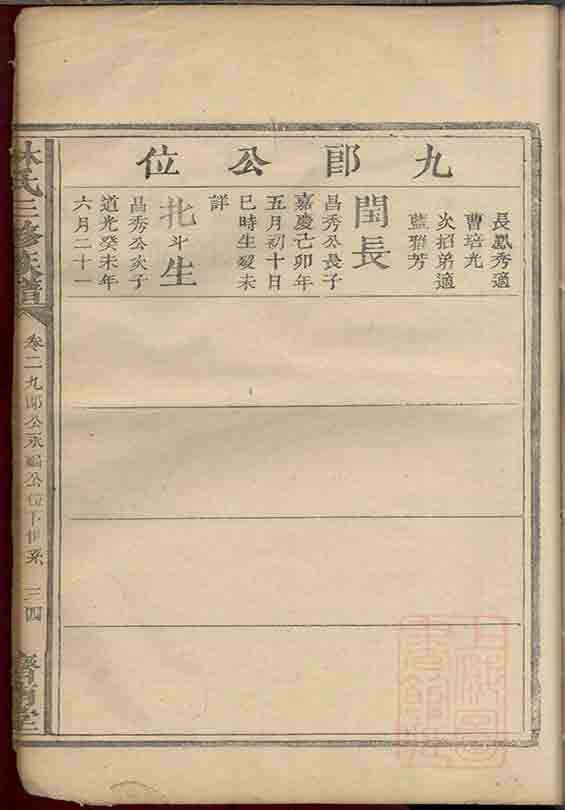 九郎公位
長鳳秀適
曹培光
次招弟適
藍雅芳
閏長
昌秀公長子
嘉慶己卯年
五月初十日
巳時生歿未
詳
北斗生
昌秀公次子
道光癸未年
六月二十一
林氏三修族譜
卷二九郎公永福公位下世系
三四